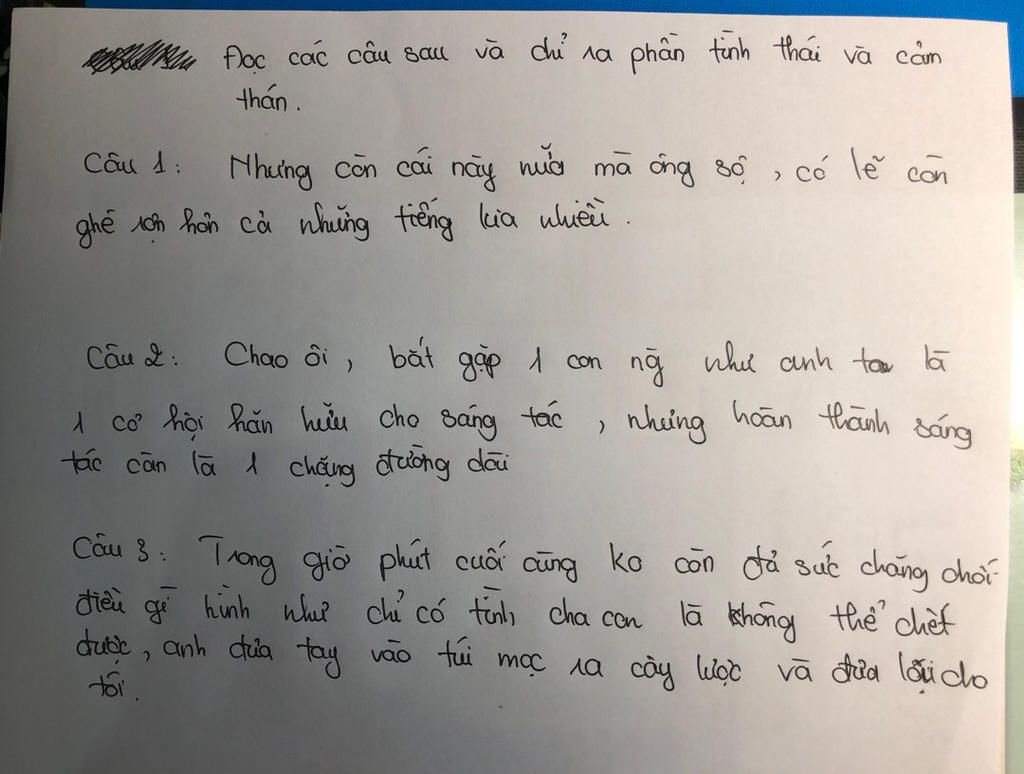 Đọc các câu sau và chỉ ra phần tình thái và cảm
thán.
Câu 1: Nhưng còn cái này nữa mà ông sợ, có lẽ còn
ghê rợn hơn cả những tiếng kia nhiều.
Câu 2: Chao ôi, bắt gặp 1 con ng` như anh ta là
1 cơ hội hãn hữu cho sáng tác, nhưng hoàn thành sáng
tác còn là 1 chặng đường dài
Câu 3: Trong giờ phút cuối cùng ko còn đủ sức chăng chối
điều gì hình như chỉ có tình cha con là không thể chết
được, anh đưa tay vào túi mọc ra cây lược và đưa lại cho
tôi.